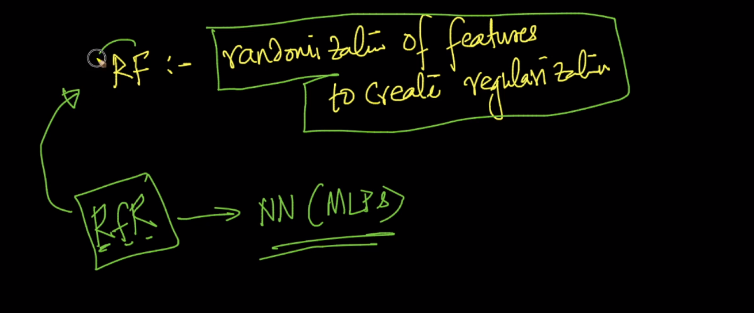 RF :- randomization of features
to create regularization
RfR → NN (MLPs)